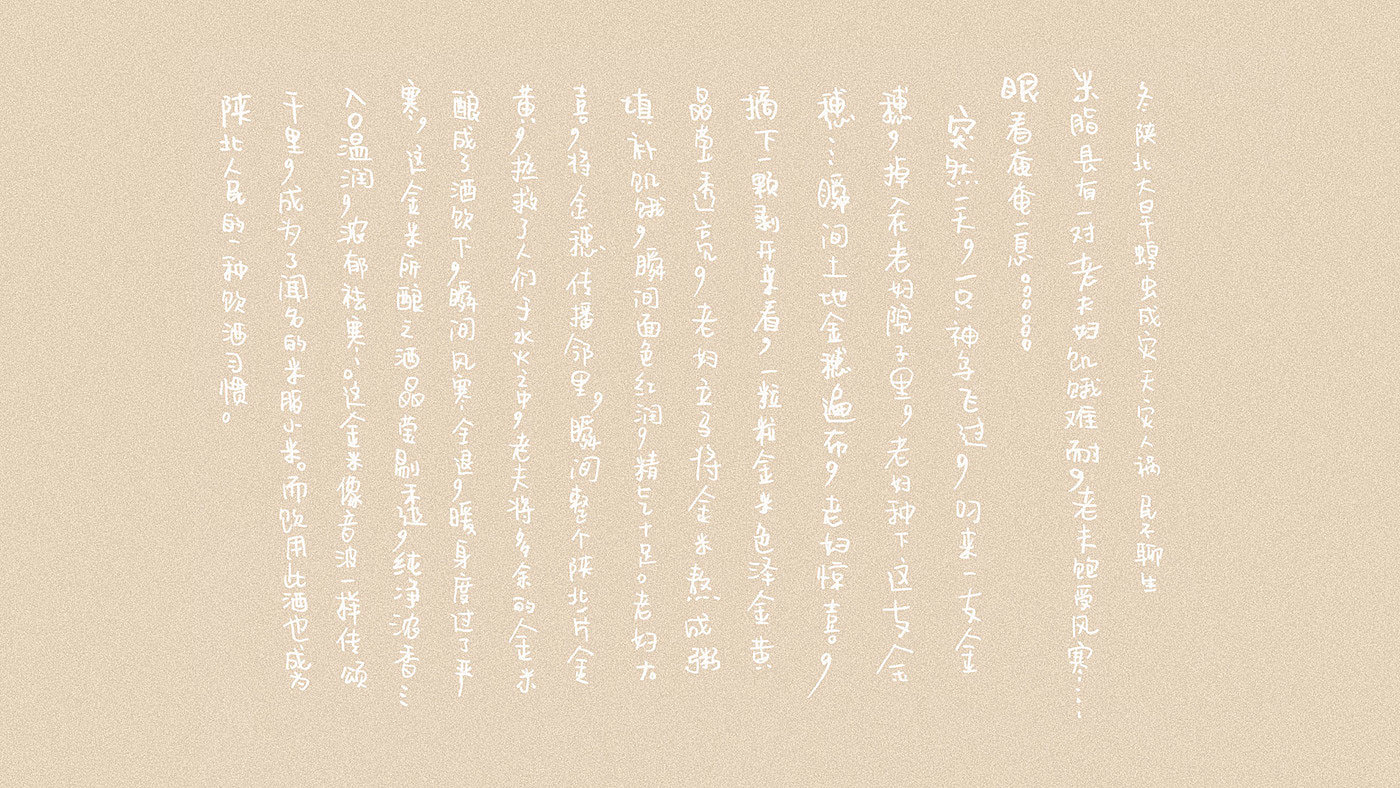 冬陕北大旱蝗虫成灾天灾人祸民不聊生
米脂县有一对老夫妇饥饿难耐，老夫饱受风寒……
眼看奄奄一息。。。。。。
突然一天，一只神鸟飞过，叼来一支金
穗，掉入在老妇院子里，老妇种下这支金
穗……瞬间土地金穗遍布，老妇惊喜。，
摘下一颗剥开来看，一粒粒金米色泽金黄
晶莹透亮，老妇立马将金米熬成粥
填补饥饿，瞬间面色红润，精气十足。老妇大
喜，将金穗传播邻里，瞬间整个陕北一片金
黄，拯救了人们于水火之中，老夫将多余的金米
酿成了酒饮下，瞬间风寒全退，暖身度过了严
寒，这金米所酿之酒晶莹剔透，纯净浓香…
入口温润，浓郁祛寒…。这金米像音波一样传颂
千里，成为了闻名的米脂小米。而饮用此酒也成为
陕北人民的一种饮酒习惯。